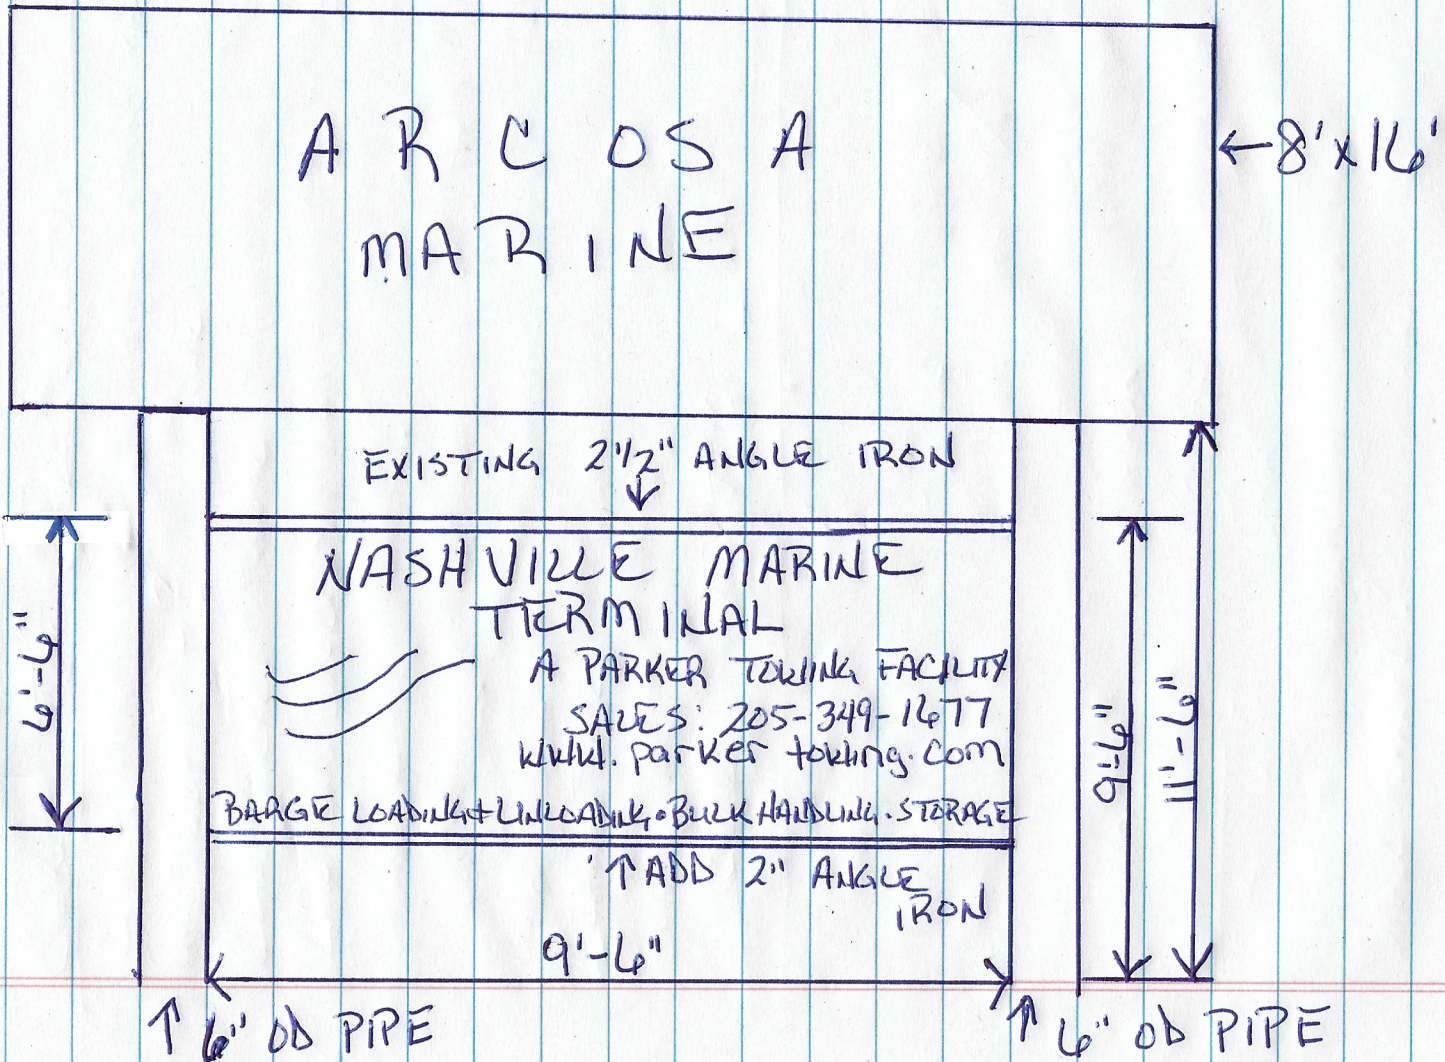 ARCOSA
MARINE
← 8'x16'
EXISTING 2 1/2" ANGLE IRON
NASHVILLE MARINE
TERMINAL
A PARKER TOWING FACILITY
SALES: 205-349-1677
www.parkertowing.com
BARGE LOADING & UNLOADING • BULK HANDLING • STORAGE
6'-6"
9'-6"
11'-6"
↑ ADD 2" ANGLE
IRON
9'-6"
↑ 6" OD PIPE
↑ 6" OD PIPE